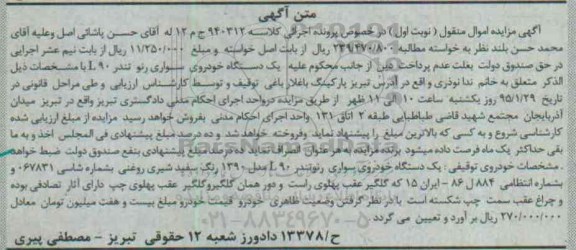 متن آگهی
آگهی مزایده اموال منقول ( نوبت اول ) در خصوص پرونده اجرائی کلاسه ۹۴۰۳۱۲ ج م ۱۲ له آقای حسن پاشائی اصل وعلیه آقای
محمد حسن بلند نظر به خواسته مطالبه ۲۳۹/۴۷۰/۸۰۰ ریال از بابت اصل خواسته و مبلغ ۱۱/۲۵۰/۰۰۰ ریال از بابت نیم عشر اجرایی
در حق صندوق دولت بعلت عدم پرداخت دین از جانب محکوم علیه یک دستگاه خودروی سواری رنو تندر L۹۰ با مشخصات ذیل
الذکر متعلق به خانم ندا نوذری و واقع در آدرس تبریز پارکینگ باغلار باغی توقیف و توسط کارشناس ارزیابی و طی مراحل قانونی در
تاریخ ۹۵/۱/۲۹ روز یکشنبه ساعت ۱۰ الی ۱۱ ظهر از طریق مزایده در واحد اجرای احکام مدنی دادگستری تبریز واقع در تبریز میدان
آذربایجان مجتمع شهید قاضی طباطبایی طبقه ۲ اتاق ۱۳۱ واحد اجرای احکام مدنی بفروش خواهد رسید مزایده از مبلغ ارزیابی شده
کارشناسی شروع و به کسی که بالاترین مبلغ را پیشنهاد نماید وفروخته خواهد شد و ده درصد مبلغ پیشنهادی فی المجلس اخذ و به ما
بقی حداکثر یک ماه فرصت داده میشود برنده مزایده هرگاه نماید مبلغ پیشنهادی بنفع صندوق دولت ضبط خواهد
. مشخصات خودروی توقیفی : یک دستگاه خودروی سواری رنوتندر L۹۰ مدل ۱۳۹۰ رنگ سفید شیری روغنی بشماره شاسی ۰۶۷۸۳۱ و
بشماره انتظامی ۸۸۴ ل ۸۶ - ایران ۱۵ که گلگیر عقب پهلوی راست و دور همان گلگیروگلگیر عقب پهلوی چپ دارای آثار تصادفی بوده
و چراغ عقب سمت چپ شکسته است با در نظر گرفتن وضعیت ظاهری خودرو قیمت خودرو مبلغ بیست و هفت میلیون تومان معادل
۲۷۰/۰۰۰/۰۰۰ ریال بر آورد و تعیین می گردد
ح/۱۳۳۷۸ دادورز شعبه ۱۲ حقوقی تبریز - مصطفی پیری
۰۲۱-۸۸۳۴۹۶۷۰-۵